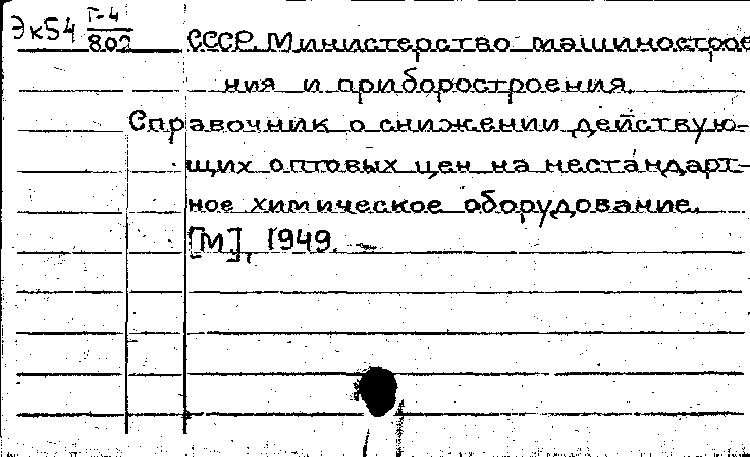 Эк54 Г-4/802
СССР. Министерство машинострое
ния и приборостроения.
Справочник о снижении действую-
щих оптовых цен на нестандарт-
ное химическое оборудование.
[М], 1949. —